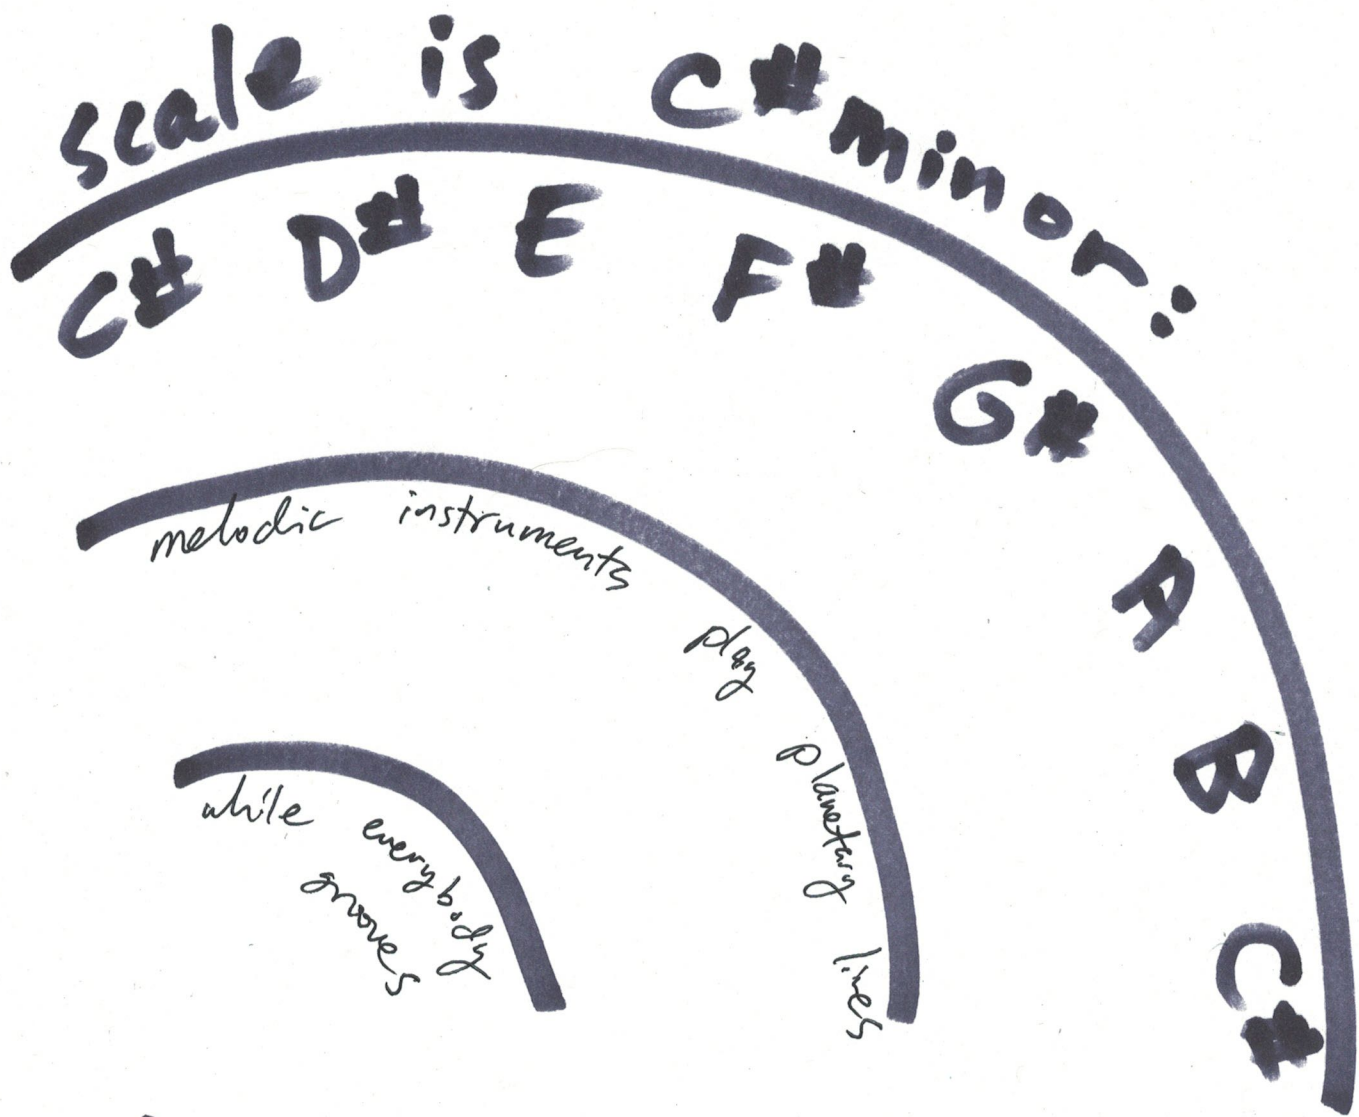 scale is C#minor:
C# D# E F# G# A B C#
melodic instruments play planetary lines
while everybody
grooves